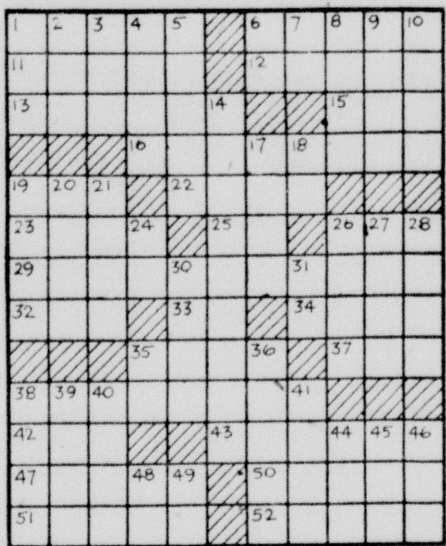 1 2 3 4 5 6 7 8 9 10
11 12
13 14 15
16 17 18
19 20 21 22
23 24 25 26 27 28
29 30 31
32 33 34
35 36 37
38 39 40 41
42 43 44 45 46
47 48 49 50
51 52